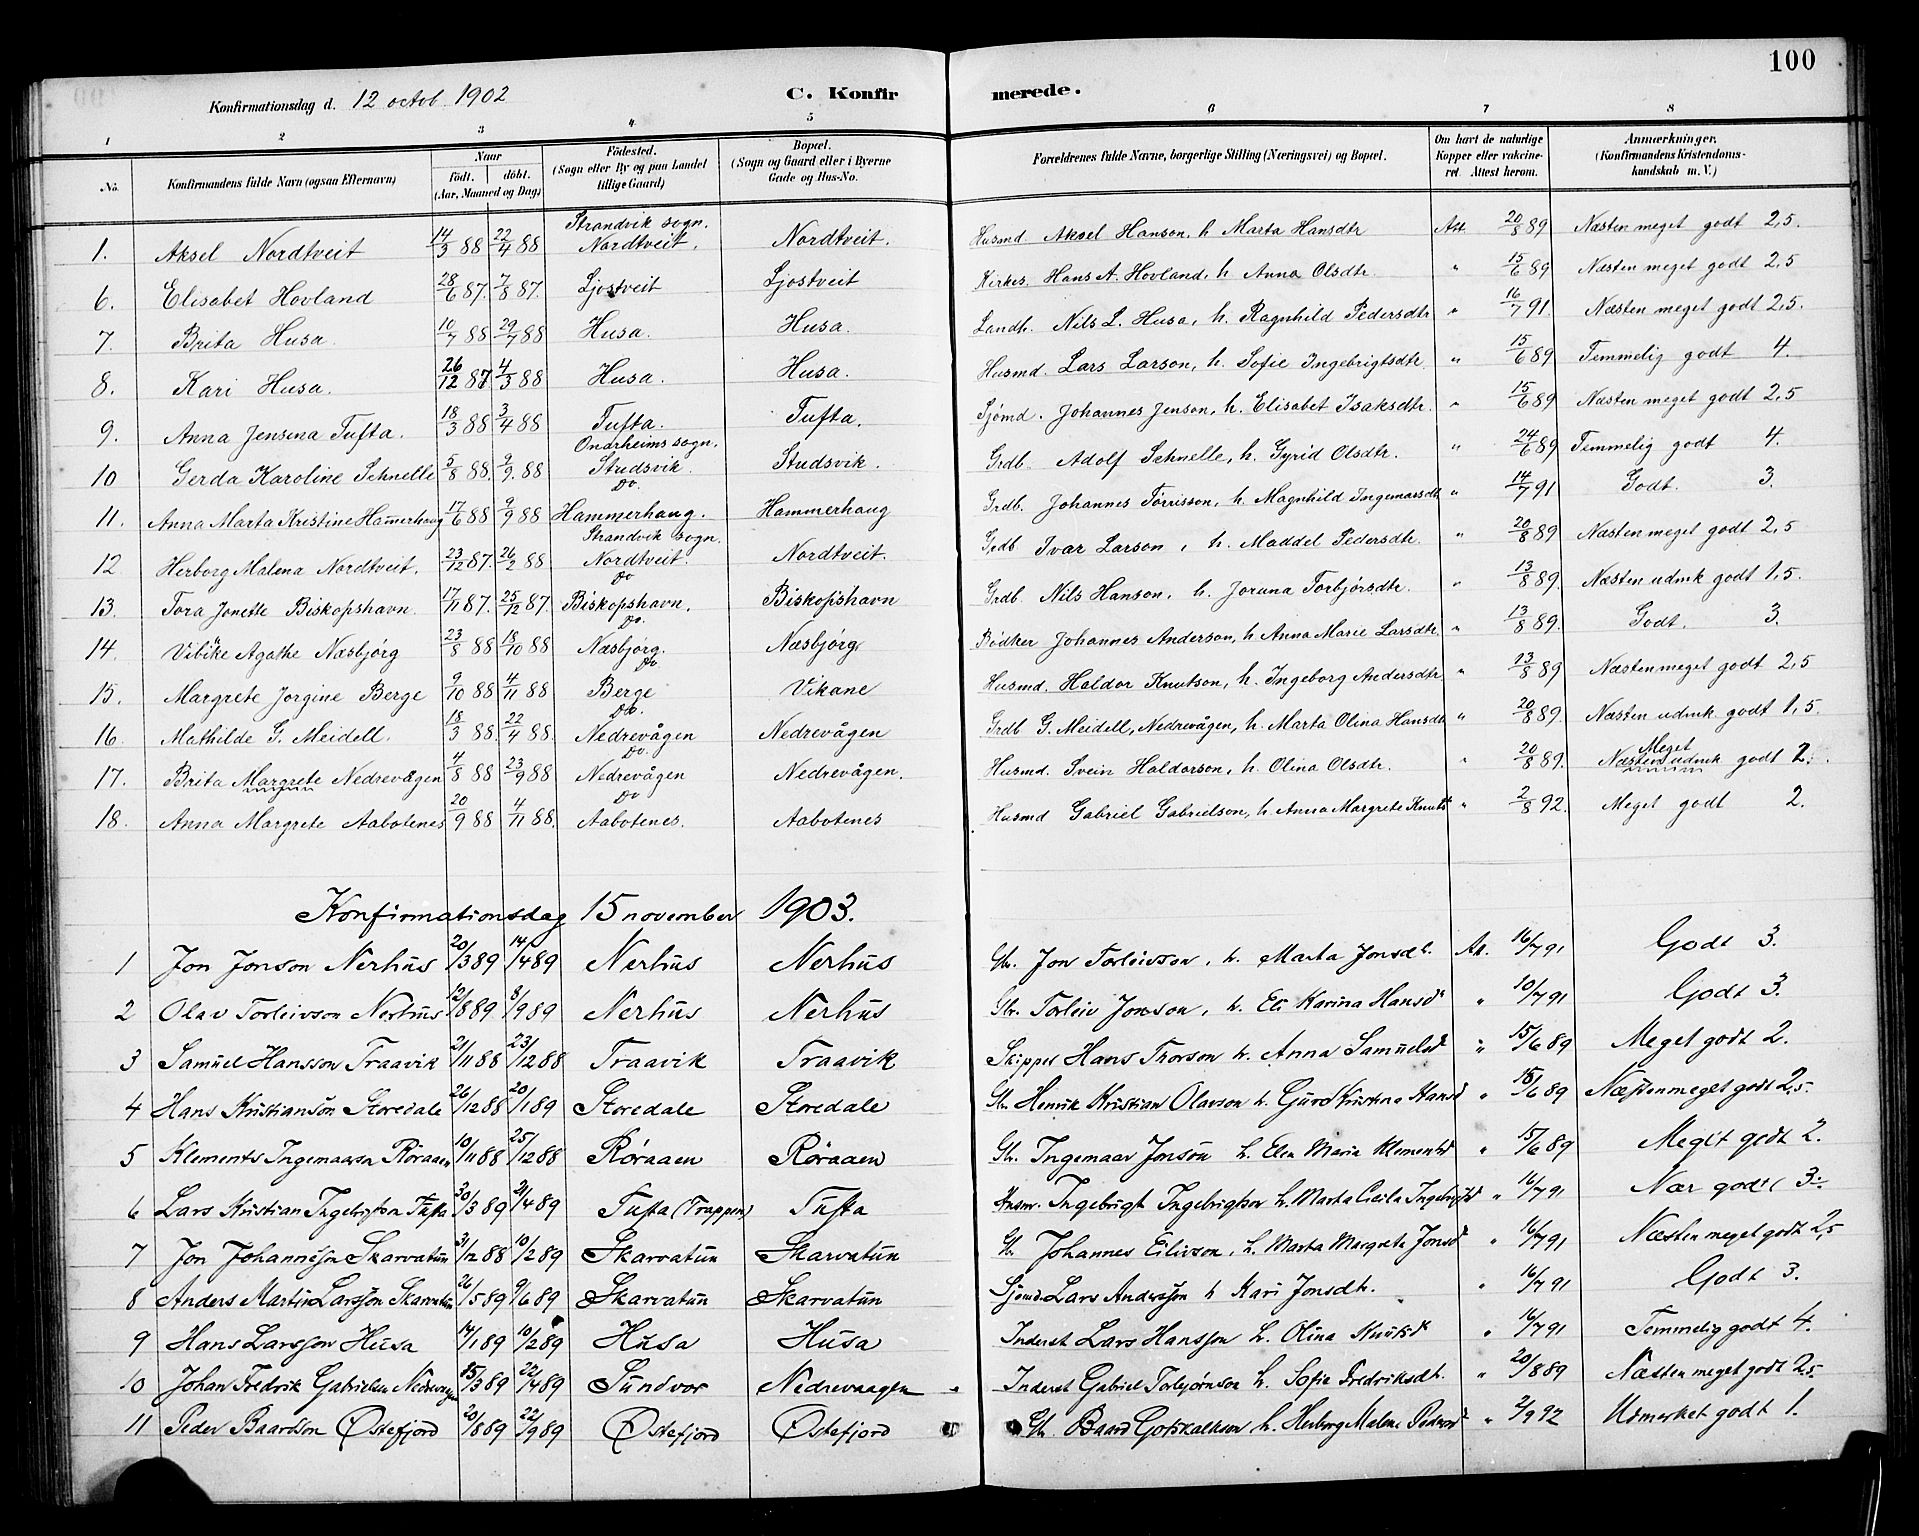 100
Konfirmationsdag d. 12 octob. 1902 C. Konfirmerede.
1 2 3 4 5 6 7 8
No. Konfirmandens fulde Navn (ogsaa Efternavn) Naar födt. döbt. (Aar, Maaned og Dag) Födested. (Sogn eller By og paa Landet tillige Gaard) Bopæl. (Sogn og Gaard eller i Byerne Gade og Hus-No. Forældrenes fulde Navne, borgerlige Stilling (Næringsvei) og Bopæl. Om havt de naturlige Kopper eller vakcineret. Attest herom. Anmærkninger. (Konfirmandens Kristendomskundskab m. V.)
1. Aksel Nordtveit 14/3 88 22/4 88 Strandvik sogn. Nordtveit. Nordtveit. Husmd. Aksel Hanson, h. Marta Hansdtr Att 20/8 89 Næsten meget godt 2,5.
6. Elisabet Hovland 28/6 87. 7/8 87. Ljostveit Ljostveit Kirkes. Hans A. Hovland, h. Anna Olsdtr. " 15/6 89 Næsten meget godt 2,5
7. Brita Husa. 10/7 88 29/7 88 Husa. Husa. Landh. Nils L. Husa, h. Ragnhild Pedersdtr " 16/7 91 Næsten meget godt 2,5.
8. Kari Husa. 26/12 87 4/3 88 Husa. Husa. Husmd. Lars Larson, h. Sofie Ingebrigtsdtr " 15/6 89 Temmelig godt 4.
9. Anna Jensina Tufta. 18/3 88 3/4 88 Tufta. Tufta. Sjömd. Johannes Jenson, h. Elisabet Isaksdtr. " 15/6 89 Næsten meget godt 2,5
10 Gerda Karoline Schnelle 5/8 88. 9/9. 88 Onarheims sogn. Studsvik. Studsvik. Grdb. Adolf Schnelle, h. Gyrid Olsdtr. " 24/6 89 Temmelig godt 4.
11. Anna Marta Kristine Hammerhaug 17/6 88 9/9 88 Do. Hammerhaug. Hammerhaug Grdb. Johannes Tørrisson, h. Magnhild Ingemarsdtr " 14/7 91 Godt. 3.
12. Herborg Malena Nordtveit. 23/12 87. 26/2 88 Strandvik sogn. Nordtveit. Nordtveit. Grdb Ivar Larson, h. Maddel Pedersdtr. " 20/8 89 Næsten meget godt 2,5
13. Tora Jonette Biskopshavn. 17/11 87. 25/12 87. Do Biskopshavn. Biskopshavn Grdb. Nils Hanson, h. Joruna Torbjörsdtr. " 13/8 89. Næsten udmk godt 1,5.
14. Vibike Agathe Næsbjörg 23/8 88 18/10 88 Do. Næsbjörg. Næsbjörg. Bödker Johannes Anderson, h. Anna Marie Larsdtr. " 13/8 89. Godt. 3.
15. Margrete Jorgine Berge 9/10 88 4/11 88 Do Berge Vikane Husmd. Haldor Knutson, h. Ingeborg Andersdtr " 13/8 89 Næsten meget godt 2,5
16. Mathilde G. Meidell. 18/3 88. 22/4 88. Do. Nedrevågen Nedrevågen Grdb G. Meidell, Nedrevågen, h. Marta Olina Hansdtr " 20/8 89. Næsten udmk. godt 1,5.
17. Brita Margrete Nedrevægen 4/8 88 23/9 88 Do. Nedrevågen Nedrevågen. Husmd. Svein Haldorson, h. Olina Olsdtr. " 20/8 89. Meget Næsten udmk godt 2.
18. Anna Margrete Aabotenes 20/9 88 4/11 88. Do Aabotenes. Aabotenes Husmd Gabriel Gabrielson, h. Anna Margrete Knuts " 2/8 92. Meget godt 2.
Konfirmationsdag 15 november 1903.
1 Jon Jonson Nerhus 20/3 89 14/4 89 Nerhus Nerhus Gbr. Jon Torleivson, h. Marta Jonsdt. At. 16/7 91 Godt 3.
2 Olav Torleivson Nerhus 12/8 89 8/9 89 Nerhus Nerhus Gbr. Torleiv Jonson, h. Eli Karina Hansd " 10/7 91 Godt 3.
3 Samuel Hansson Traavik 21/11 88 23/12 88 Traavik Traavik Skipper Hans Thorson h. Anna Samuelsd " 15/6 89 Meget godt 2.
4 Hans Kristianson Storedale 26/12 88 20/1 89 Storedale Storedale Gbr Henrik Kristian Olavson h. Guro Kristina Hansd " 15/6 89 Næsten meget godt 2,5
5 Klements Ingemarson Röraaen 10/11 88 25/12 88 Röraaen Röraaen Gbr. Ingemaar Jonson h. Elen Maria Klementsd " 15/6 89 Meget godt 2.
6 Lars Kristian Ingebrigtson Tufta 30/3 89 21/4 89 Tufta (Trappen) Tufta Husm. Ingebrigt Ingebrigtson h. Marta Cecilia Ingebrigtsd " 16/7 91 Nær godt 3÷
7 Jon Johannesson Skarvatun 31/12 88 10/2 89 Skarvatun Skarvatun Gbr Johannes Eilivson, h. Marta Margreta Jonsd " 16/7 91 Næsten meget godt 2,5
8 Anders Martin Larsson Skarvatun 26/5 89 9/6 89 Skarvatun Skarvatun Sjømd. Lars Andersson h Kari Jonsdt. " 16/7 91 Godt 3.
9 Hans Larsson Husa 14/1 89 10/2 89 Husa Husa Inderst Lars Hansson h. Olina Knutsd " 16/7 91 Temmelig godt 4.
10 Johan Fredrik Gabrielsen Nedrevaagen 15/3 89 22/4 89 Sundvor Nedrevaagen Inderst Gabriel Torbjørnson h. Sofie Fredriksdt. " 20/8 89 Næsten meget godt 2,5
11 Peder Baardson Østefjord 20/8 89 22/9 89 Østefjord Østefjord Gbr Baard Gotskalkson h. Herborg Malene Pedersd " 2/9 92 Udmerket godt 1.